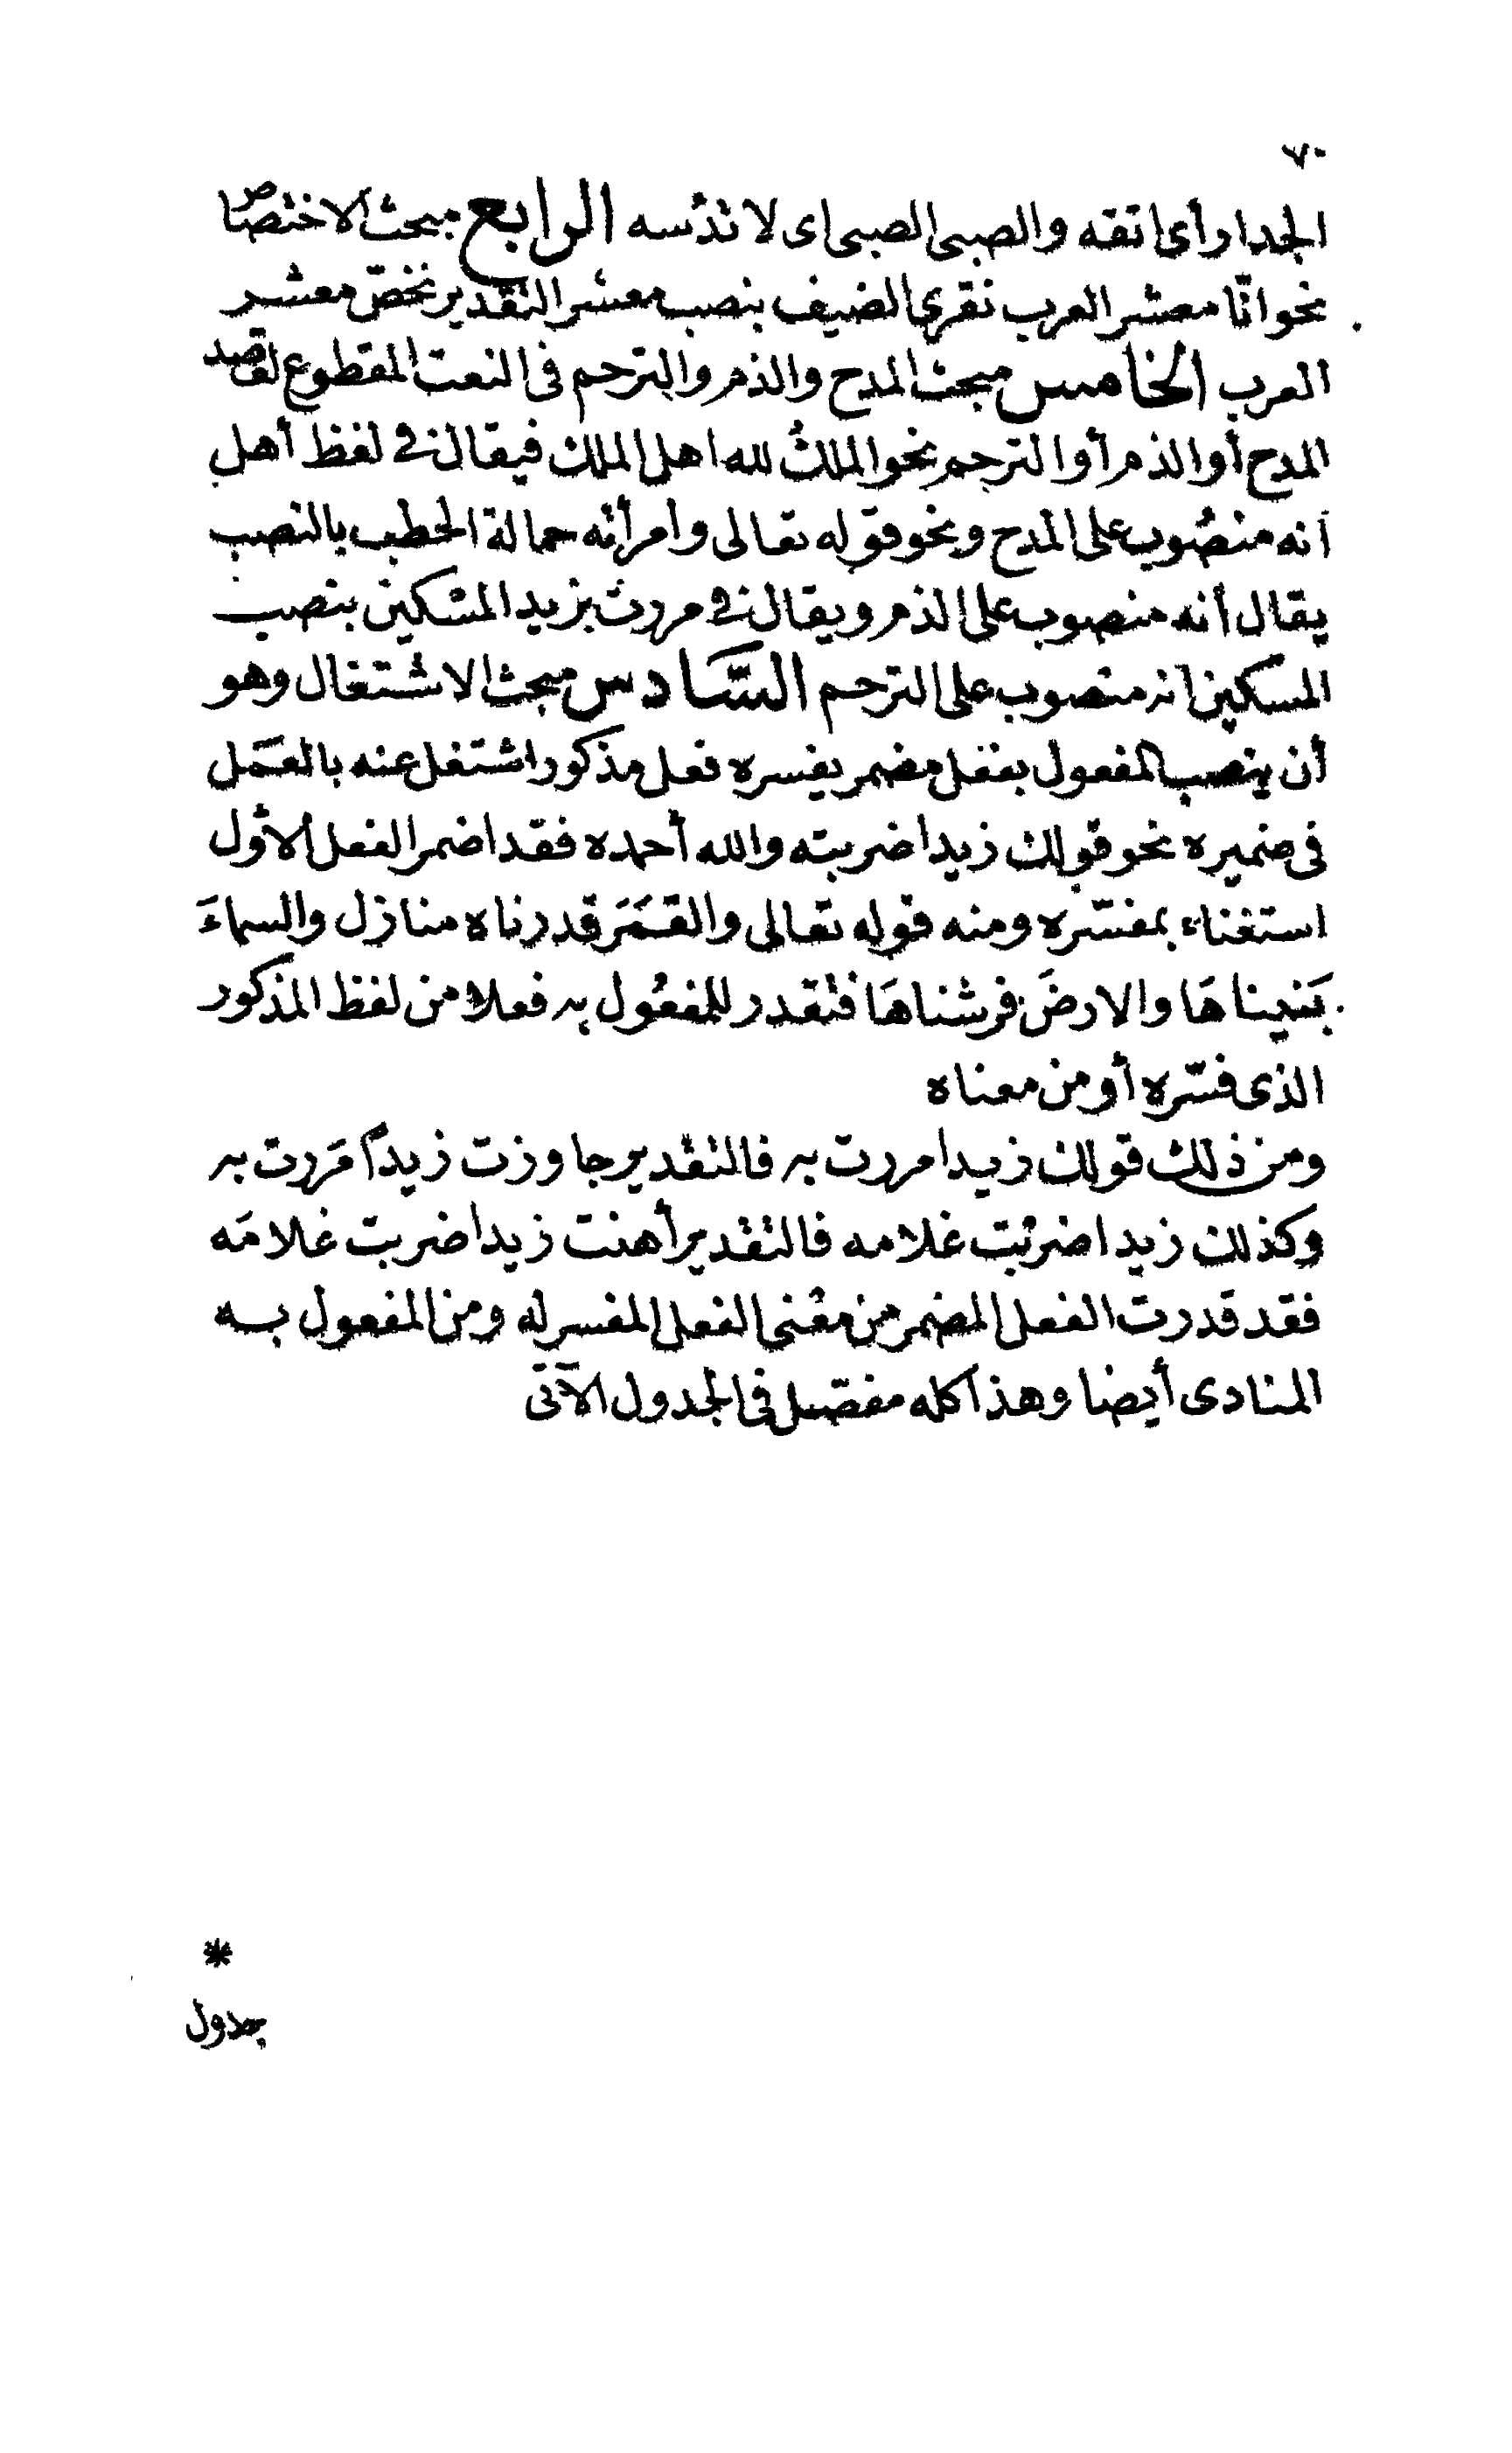 ٧٠
الجدار أى اتقه والصبى الصبى اى لا تدُسه الرابع مبحث الاختصاص
نحو انّا معشر العرب نقرى الضيف بنصب معشر التقدير نخصّ معشر
العرب الخامس مبحث المدح والذم والترحم فى النعت المقطوع لقصد
المدح أو الذم أو الترحم نحو الملكُ لله اهل الملك فيقال فى لفظ أهل
أنه منصُوب على المدح ونحو قوله تعالى وامرأته حمالة الحطب بالنصب
يقال أنه منصوب على الذم ويقال فى مررت بزيد المسكين بنصب
المسكين أنه منصوب على الترحم السَّادس مبحث الاشتغال وهو
أن ينصب المفعول بفعل مضمر يفسره فعل مذكور اشتغل عنه بالعَمَل
فى ضميره نحو قولك زيدا ضربته والله أحمده فقد اضمر الفعل الأوّل
استغناء بمفسّره ومنه قوله تعالى والقَمَرَ قدرناه منازل والسماءَ
بَنيناهَا والارضَ فرشناهَا فتقدر للمفعُول به فعلا من لفظ المذكور
الذى فسّره أو من معناه
ومن ذلك قولك زيدا مررت به فالتقدير جاوزت زيداً مَررت به
وكذلك زيدا ضربْت غلامه فالتقدير أهنت زيدا ضربت غلامَه
فقد قدرت الفعل المضمر من معْنى الفعل المفسر له ومن المفعول به
المنادى أيضا وهذا كله مفصّل فى الجدول الآتى
*
جدول